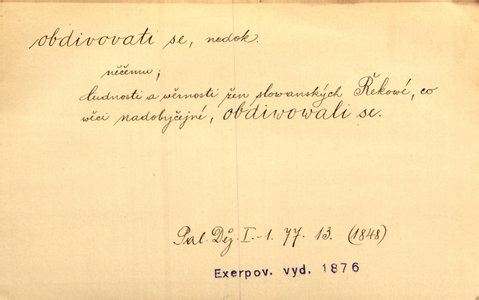 obdivovati se, nedok.
něčemu;
tudnosti a věrnosti žen slowanských Řekowé, co
wěci nadobyčejné, obdiwowali se.
Pal. Děj. I.-1. 77. 13. (1848)
Exerpov. vyd. 1876